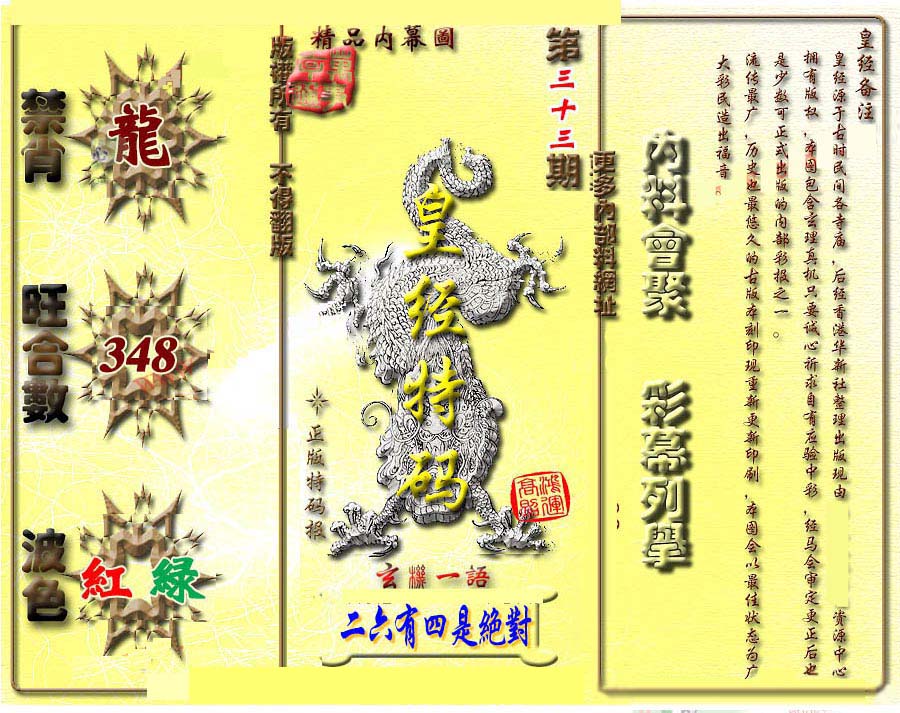 皇经备注
皇经源于古时民间各寺庙,后经香港华新社整理出版现由 资源中心
拥有版权,本图包含玄理真机只要诚心祈求自有应验中彩,经马会审定更正后也
是少数可正式出版的内部彩报之一。
流传最广,历史也最悠久的古版本刻印现重新更新印刷,本图会以最佳状态为广
大彩民造出福音
内料會聚 彩幕列舉
更多內部料網址
第三十三期
精品内幕圖
皇经特码
正版特码报
鴻運高照
玄機一語
二六有四是絕對
版權所有 不得翻版
禁肖
龍
旺合數
348
波色
紅 綠